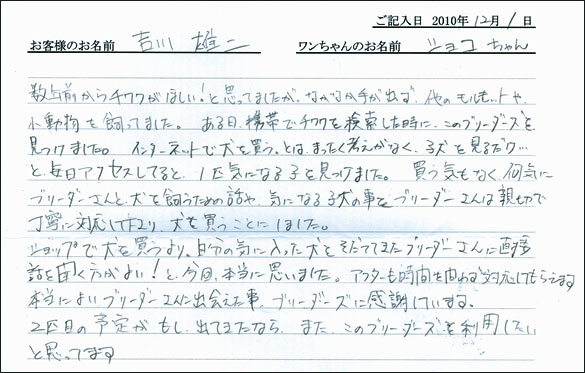 ご記入日 2010年 12月 1日
お客様のお名前 吉川 雄二 ワンちゃんのお名前 ショコ ちゃん
数年前からチワワがほしい！と思ってましたが、なかなか手が出ず、他のモルモットや
小動物を飼ってました。ある日、携帯でチワワを検索した時に、このブリーダーズを
見つけました。インターネットで犬を買う。とは、まったく考えがなく、子犬を見るだけ…
と毎日アクセスしてると、1匹気になる子を見つけました。買う気もなく何気に
ブリーダーさんと犬を飼うための話や、気になる子犬の事をブリーダーさんは親切で
丁寧に対応して下さり、犬を買うことにしました。
ショップで犬を買うより、自分の気に入った犬をそだててきたブリーダーさんに直接
話を聞く方がよい！と、今回、本当に思いました。アフターも時間を問わず対応してもらえます
本当によいブリーダーさんに出会えた事、ブリーダーズに感謝しています。
2匹目の予定がもし、出てきたなら、また、このブリーダーズを利用したい
と思ってます